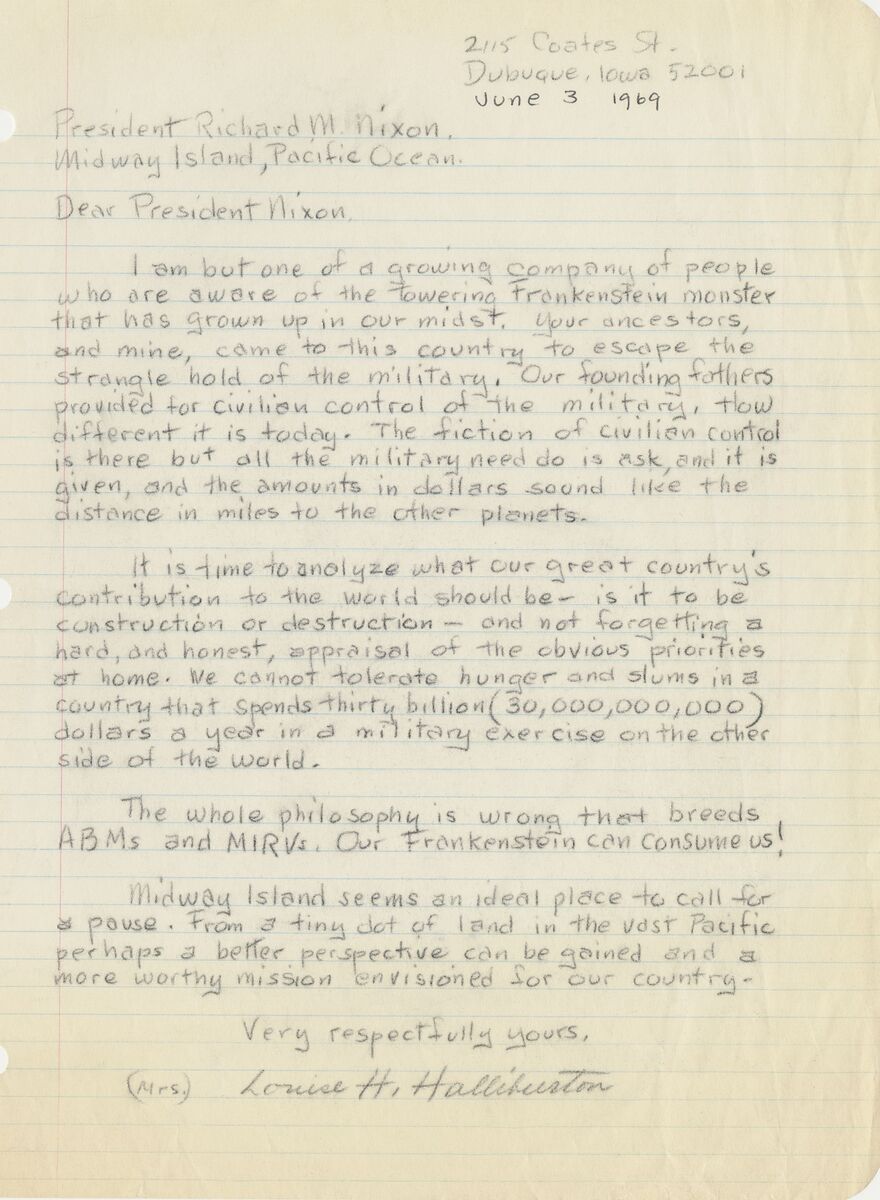 2115 Coates St.
Dubuque, Iowa 52001
June 3 1969
President Richard M. Nixon.
Midway Island, Pacific Ocean.
Dear President Nixon.
I am but one of a growing company of people
who are aware of the towering Frankenstein monster
that has grown up in our midst. Your ancestors,
and mine, came to this country to escape the
strangle hold of the military. Our founding fathers
provided for civilian control of the military. How
different it is today. The fiction of civilian control
is there but all the military need do is ask, and it is
given, and the amounts in dollars sound like the
distance in miles to the other planets.
It is time to analyze what our great country's
contribution to the world should be - is it to be
construction or destruction - and not forgetting a
hard, and honest, appraisal of the obvious priorities
at home. We cannot tolerate hunger and slums in a
country that spends thirty billion (30,000,000,000)
dollars a year in a military exercise on the other
side of the world.
The whole philosophy is wrong that breeds
ABMs and MIRVs. Our Frankenstein can consume us!
Midway Island seems an ideal place to call for
a pause. From a tiny dot of land in the vast Pacific
perhaps a better perspective can be gained and a
more worthy mission envisioned for our country.
Very respectfully yours,
(Mrs.) Louise H. Halliburton